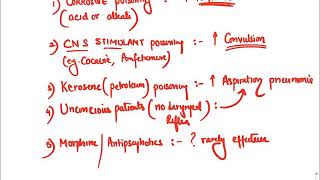 1) Corrosive poisoning :-
(acid or alkali)
2) CNS STIMULANT poisoning :- ↑ Convulsion
(eg. Cocaine, Amfetamene)
3) Kerosene (petroleum) poisoning :- ↑ Aspiration pneumonia
4) Unconcious patients (no laryngeal
Reflex)
5) Morphine / Antipsychotics :- ? rarely effective